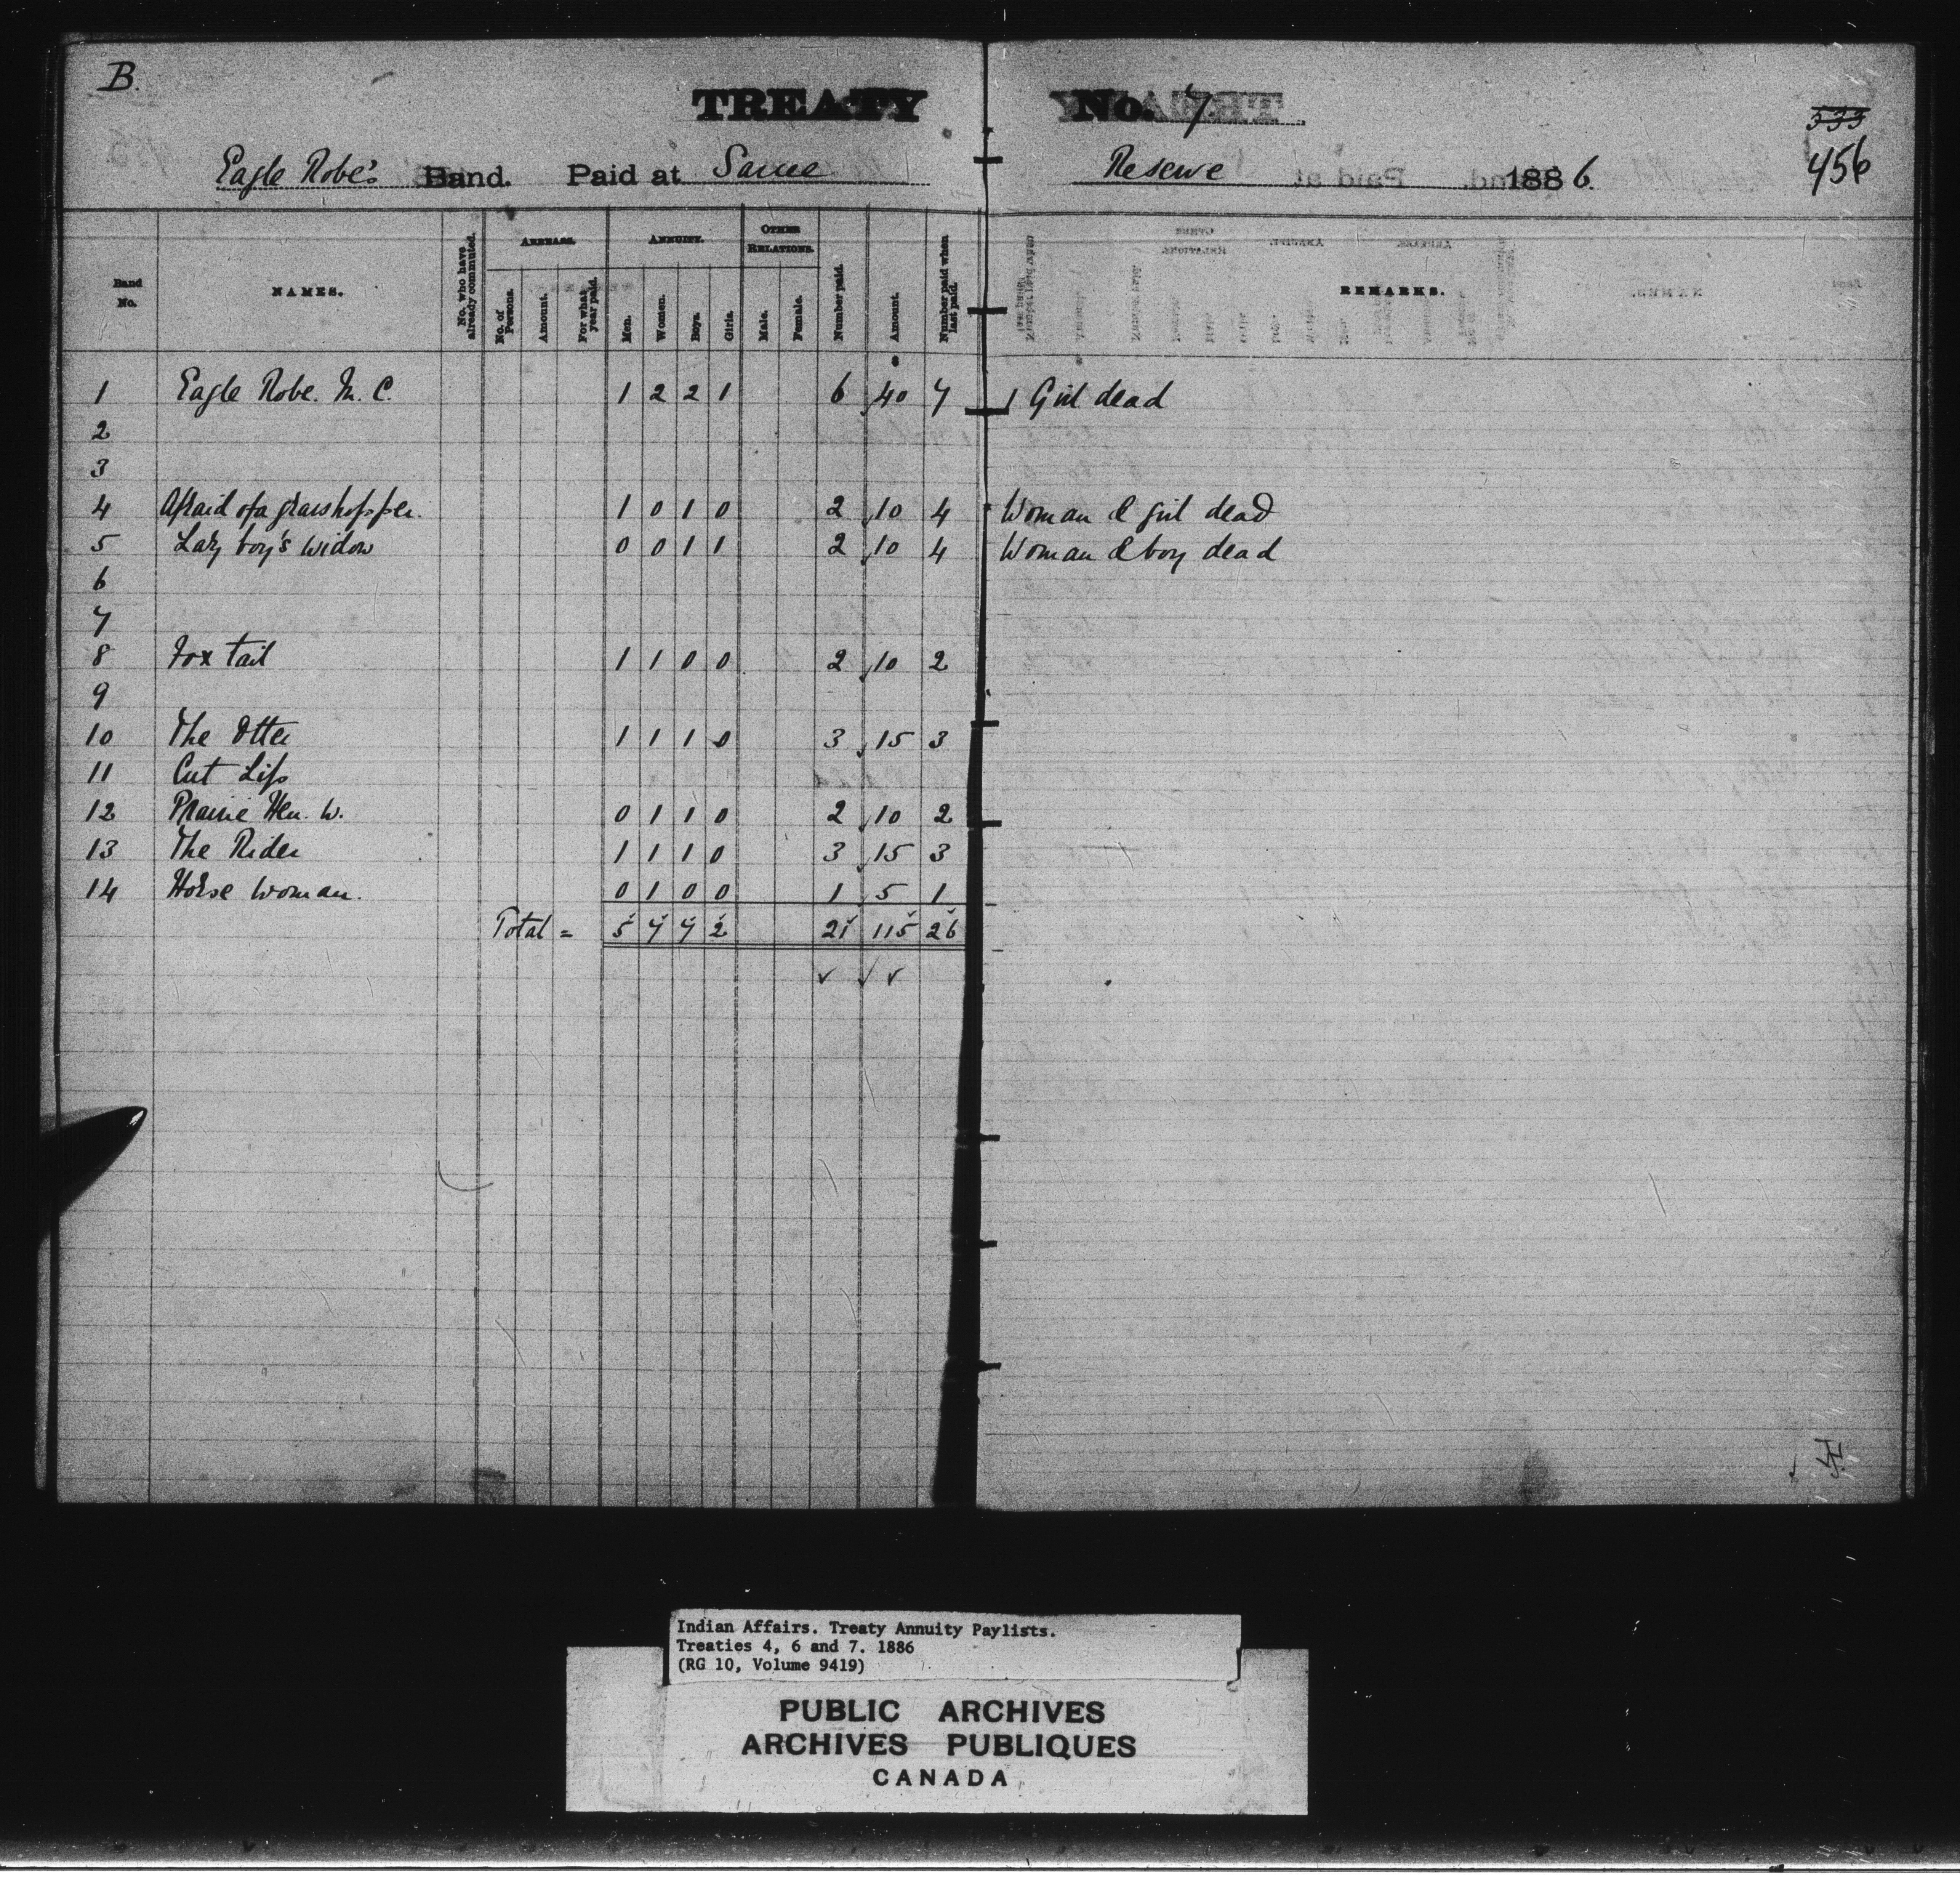 B.
TREATY No. 7
533
456
Eagle Robe's Band. Paid at Sarcee Reserve 1886.
Band No. NAMES. No. who have already commuted. ARREARS. No. of Persons. Amount. For what year paid. ANNUITY. Men. Women. Boys. Girls. OTHER RELATIONS. Male. Female. Number paid. Amount. Number paid when last paid. REMARKS.
1 Eagle Robe. M. C. 1 2 2 1 6 40 7 1 Girl dead
2
3
4 Afraid of a grasshopper. 1 0 1 0 2 10 4 Woman & girl dead
5 Lazy boy's widow 0 0 1 1 2 10 4 Woman & boy dead
6
7
8 Fox tail 1 1 0 0 2 10 2
9
10 The Otter 1 1 1 0 3 15 3
11 Cut Lip
12 Prairie Hen. W. 0 1 1 0 2 10 2
13 The Rider 1 1 1 0 3 15 3
14 Horse Woman. 0 1 0 0 1 5 1
Total = 5 7 7 2 21 115 26
Indian Affairs. Treaty Annuity Paylists.
Treaties 4, 6 and 7. 1886
(RG 10, Volume 9419)
PUBLIC ARCHIVES
ARCHIVES PUBLIQUES
CANADA